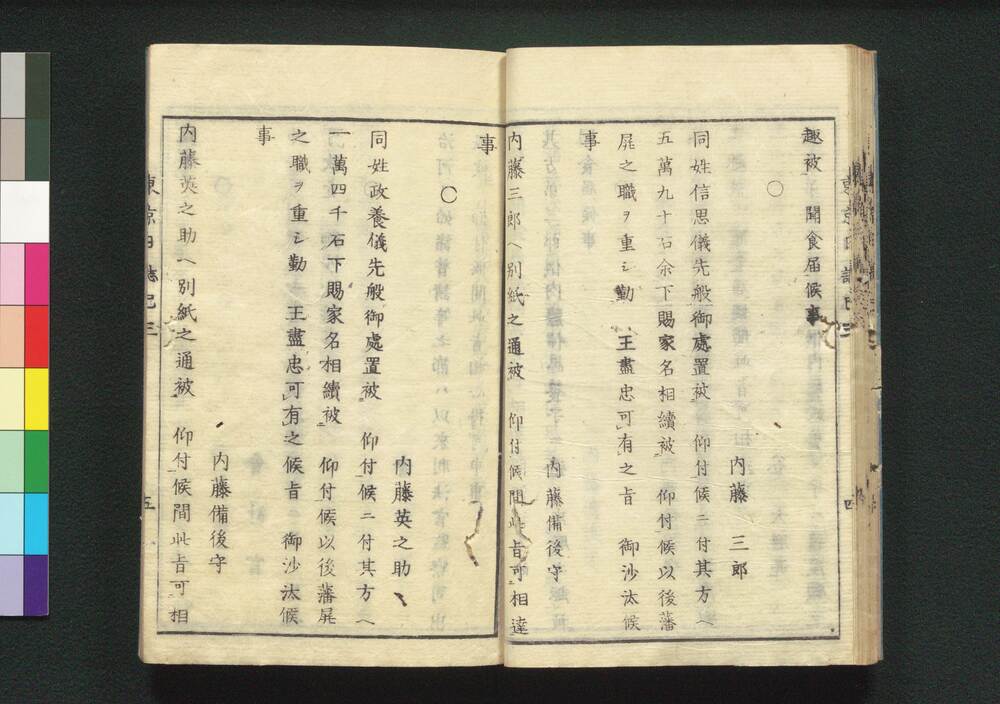 趣被　聞食届候事
○
内藤　三郎
同姓信思儀先般御處置被　仰付候ニ付其方ヘ
五萬九十石余下賜家名相續被　仰付候以後藩
屏之職ヲ重シ勤　王盡忠可有之旨　御沙汰候
事
内藤備後守
内藤三郎ヘ別紙之通被　仰付候間此旨可相達
事
○
内藤英之助
同姓政養儀先般御處置被　仰付候ニ付其方ヘ
一萬四千石下賜家名相續被　仰付候以後藩屏
之職ヲ重シ勤　王盡忠可有之候旨　御沙汰候
事
内藤備後守
内藤英之助ヘ別紙之通被　仰付候間此旨可相
東京日誌己三
五